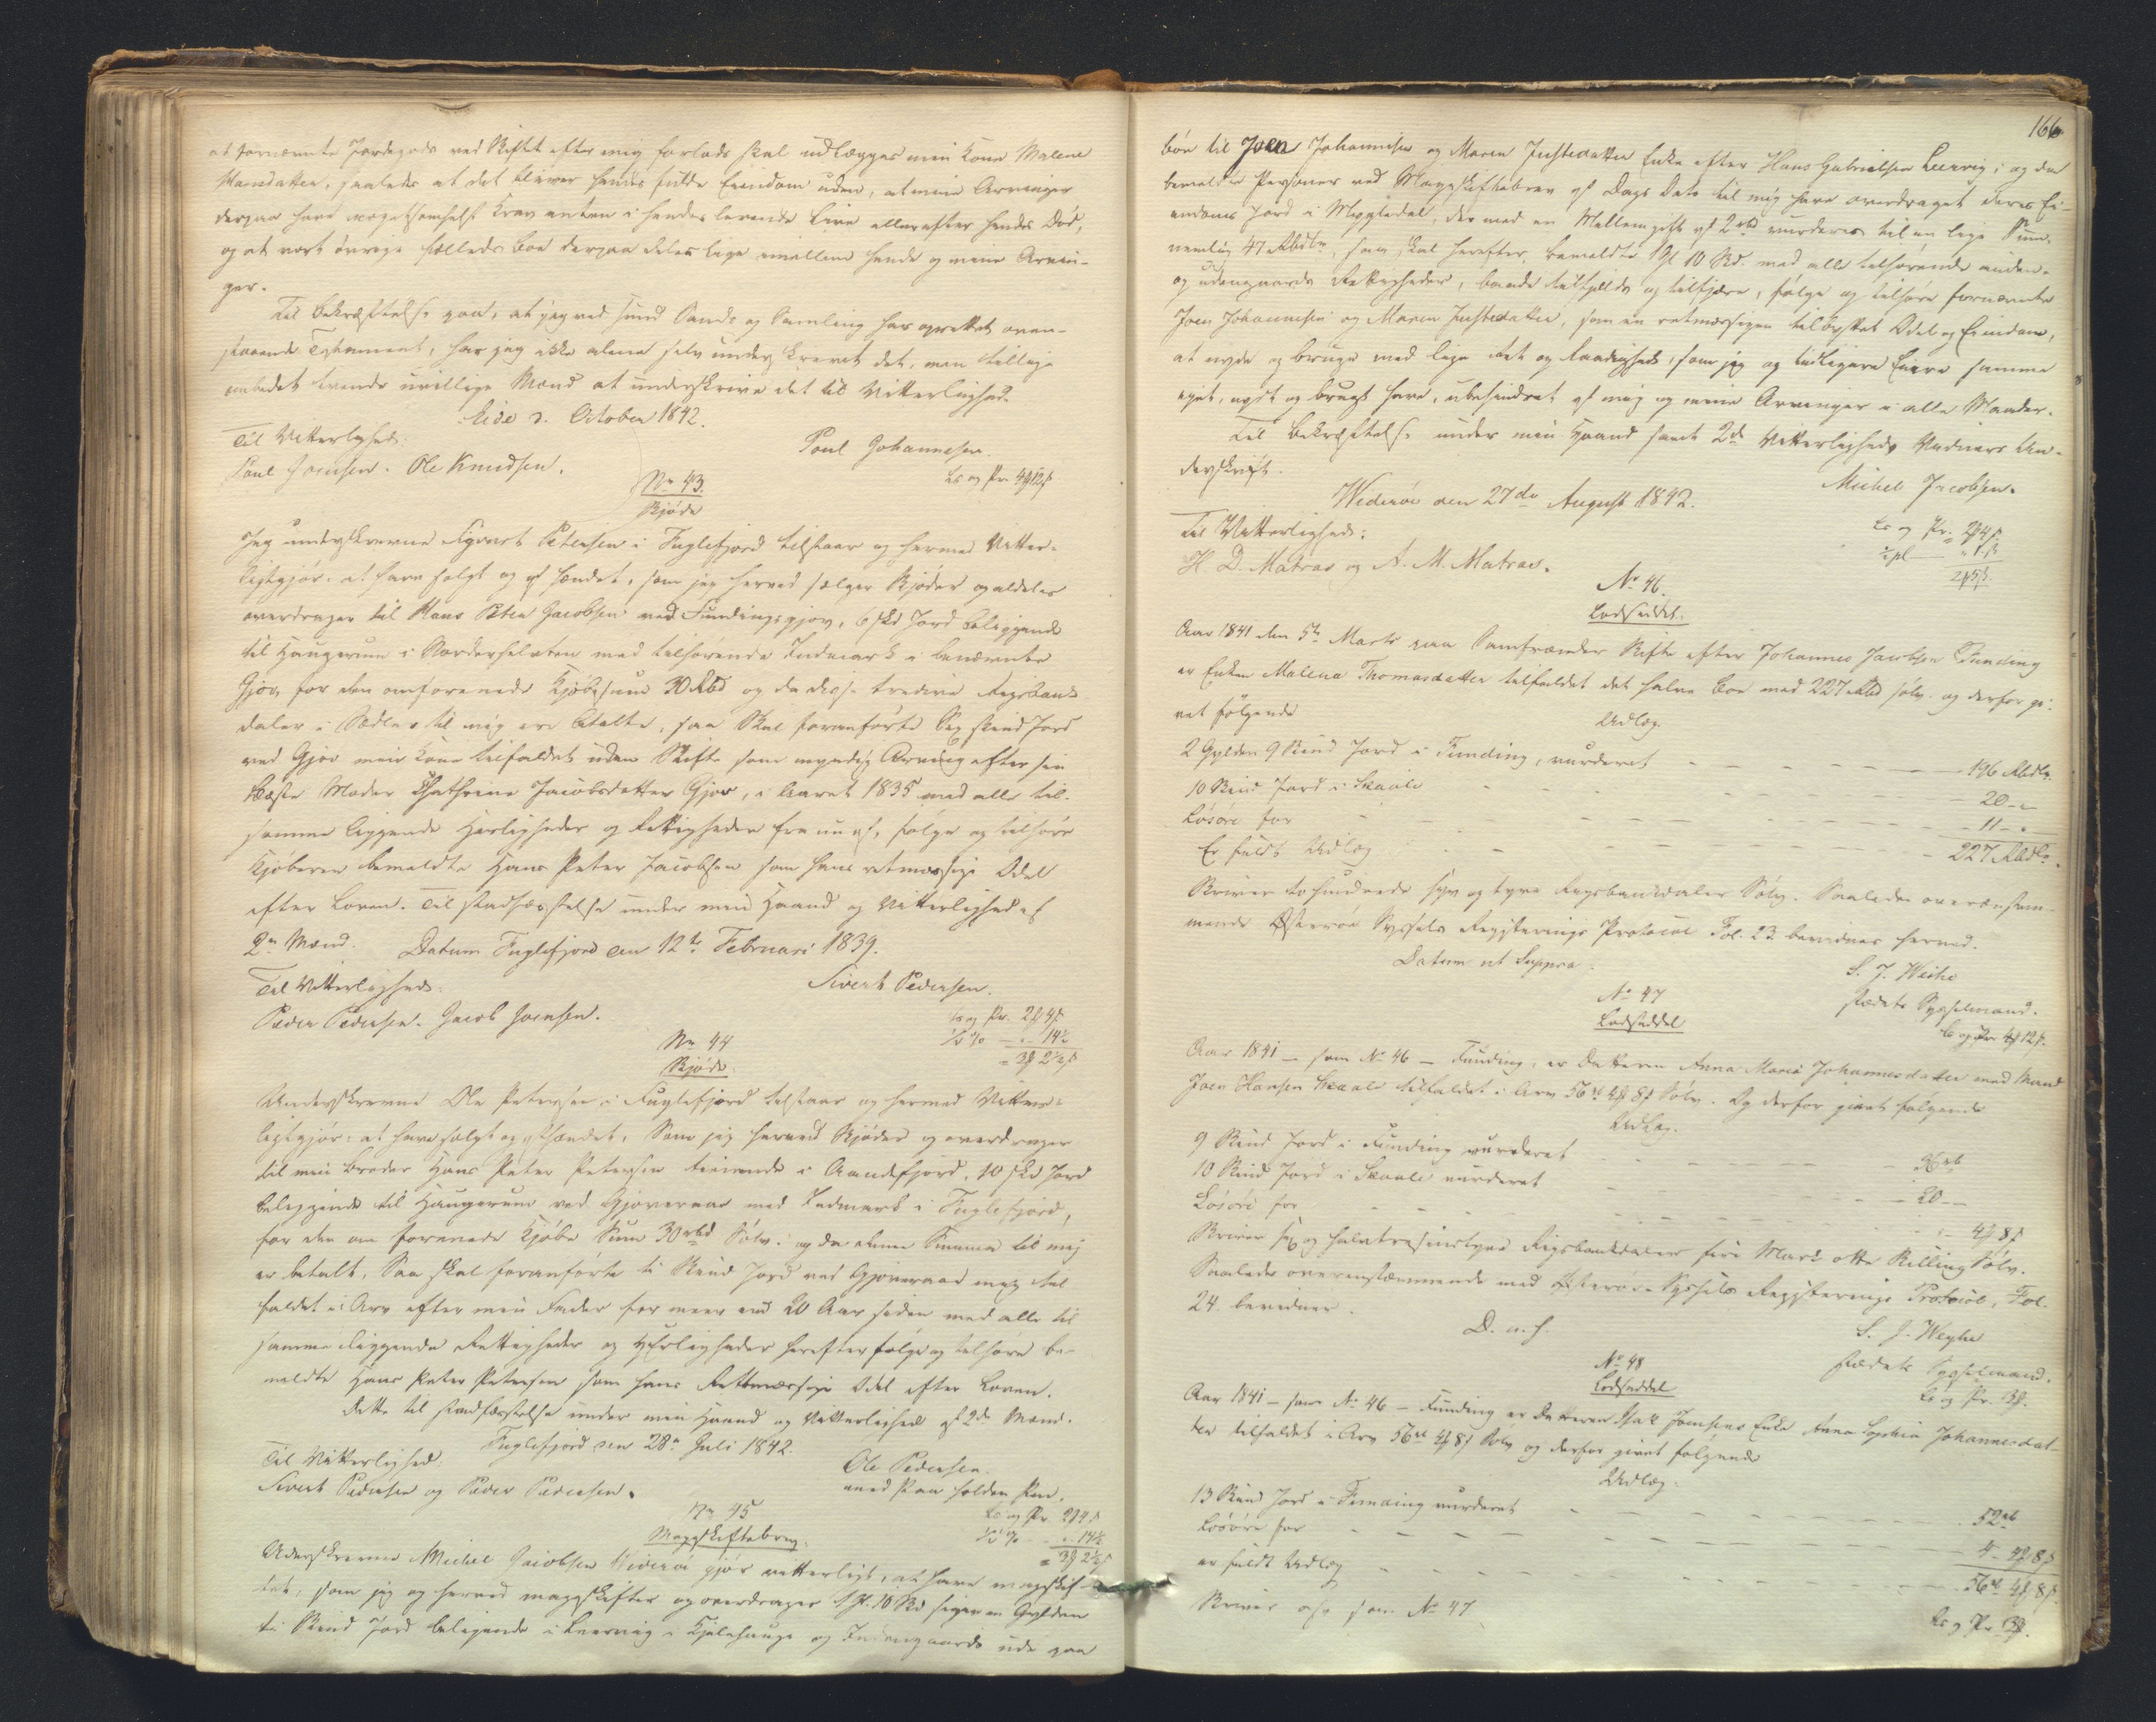 at fornævnte Jordegods ved Skifte efter mig forlods skal udlægges min Kone Malene
Hansdatter, saaledes at det bliver hendes fulde Eiendom uden, at mine Arvinger
derpaa have nogetsomhelst Krav enten i hendes levende Live eller efter hendes Død,
og at vort øvrige fælleds Boe derpaa deles lige imellem hende og mine Arvin-
ger.
Til Bekræftelse paa, at jeg ved sund Sands og Samling har oprettet oven-
staaende Testament, har jeg ikke alene selv underskrevet det, men tillige
ombedet tvende uvillige Mænd at underskrive det til Vitterlighed.
Eide d. October 1842.
Til Vitterlighed:
Poul Johannesen.
Poul Joensen. Ole Knudsen.
Ls og Pr. 4β12β
No 43.
Skjøde
Jeg underskrevne Syvert Petersen i Fuglefjord tilstaar og hermed Vitter-
ligtgjør: at have solgt og afhændet, som jeg herved sælger skjøder og aldeles
overdrager til Hans Peter Jacobsen ved Fundingsgjov, 6 skd Jord beliggende
til Haugerum i Norderhelvten med tilhørende Indmark i benævnte
Gjov, for den omforenede Kjøbesum 30 Rbd og da disse tredive Rigsbank-
daler i Sedler til mig ere betalte, saa skal foranførte Sex skind Jord
ved Gjov min Kone tilfaldet uden Skifte som myndig Arving efter sin
Moder Chathrine Jacobsdatter Gjov, i Aaret 1835 med alle til-
samme liggende Herligheder og Rettigheder fra nu af, følge og tilhøre
Kjøberen bemeldte Hans Peter Jacobsen som hans retmæssige Odel
efter Loven. Til stadfæstelse under min Haand og Vitterlighed af
2de Mænd. Datum Fuglefjord den 12te Februari 1839.
Til Vitterlighed:
Sivert Pedersen.
Peder Pedersen. Jacob Joensen.
Ls og Pr. 2β4β
½ % - " - 14½
= 3β 2½β
No 44
Skjøde.
Underskrevne Ole Petersen i Fuglefjord tilstaar og hermed Vitter-
ligtgjør: at have solgt og afhændet, Som jeg herved skjøder og overdrager
til min Broder Hans Peter Petersen tienende i Aandefjord, 10 skd Jord
beliggende til Haugerum ved Gjoveraae med Indmark i Fuglefjord,
for den om forenede Kjøbe Sum 30 rbd Sølv: og da denne Summa til mig
er betalt, Saa skal foranførte ti Skind Jord ved Gjoveraae mig til
faldet i Arv efter min Fader for meer end 20 Aar siden med alle til
samme liggende Rettigheder og Herligheder herefter følge og tilhøre be-
meldte Hans Peter Petersen som hans Rettmæssige Odel efter Loven.
Dette til stadfæstelse under min Haand og Vitterlighed af 2de Mænd.
Fuglefjord den 28de Juli 1842.
Til Vitterlighed
Ole Pedersen.
Sivert Pedersen og Peder Pedersen.
med paa holden Pen.
No 45
Ls og Pr. 2β4β
Mageskiftebrev.
½ % - " - 14½
= 3β 2½β
Underskrevne Michel Jacobsen Viderøe gjør vitterligt, at have mageskif-
tet, som jeg og herved mageskifter og overdrager 1 Gl. 10 Sk siger en Gylden
ti Skind Jord beligende i Leervig i Kjelehauge og Indengaards ude paa
166
bøe til Joen Johannesen og Maren Justesdatter Enke efter Hans Gabrielsen Leervig; og da
bemeldte Personer ved Mageskiftebrev af Dags Dato til mig have overdraget deres Ei-
endoms Jord i Mygledal, der med en Mellemgift af 2 rbd vurderes til en lige Sum,
nemlig 47 Rbdlr, saa skal herefter, bemeldte 1 Gl 10 Sk. med alle tilhørende inden-
og udengaards Rettigheder, baade tilfjelds og tilfjære, følge og tilhøre fornævnte
Joen Johannesen og Maren Justesdatter, som en retmæssigen tilbyttet Odel og Eiendom,
at nyde og bruge med lige Ret og Raadighed, som jeg og tidligere Eiere samme
eiet, nydt og brugt have, ubehindret af mig og mine Arvinger i alle Maader.
Til Bekræftelse under min Haand samt 2de Vitterligheds Vidners Un-
derskrift.
Michel Jacobsen.
Widerøe den 27de August 1842.
Til Vitterlighed:
Ls og Pr. 2β4β.
H. D. Matras og A. M. Matras.
½ pC " 1β
2β5β.
No 46.
Lodseddel.
Aar 1841 den 5te Marts paa Samfrænder Skifte efter Johannes Jacobsen Funding
er Enken Malena Thomasdatter tilfaldet det halve Boe med 227 Rbd Sølv. og derfor gi-
vet følgende
Udlæg.
2 Gylden 9 Skind Jord i Funding, vurderet - - - 196 Rbdlr.
10 Skind Jord i Skaale - - - 20 - "
Løsøre for - - - 11 - "
Er fuldt Udlæg - - - 227 Rbdlr.
Skriver to hundrede syv og tyve Rigsbankdaler Sølv. Saaledes overensstem-
mende Østerøe Syssels Registerings Protocol Fol. 23 bevidnes herved.
Datum ut Suppra.
S. J. Weihe
No 47
Lodseddel
Ls og Pr 4β 12β.
Aar 1841 - som No 46 - Funding, er Datteren Anna Maria Johannesdatter med Mand
Joen Hansen Skaale tilfaldet i Arv 56 rd 4β 8β Sølv. Og derfor givet følgende
Udlæg.
9 Skind Jord i Funding vurderet - - - 36 rb
10 Skind Jord i Skaale vurderet - - - 20 - -
Løsøre for - - - " - 4β 8β
Skriver sex og halvtresindstyve Rigsbankdaler fire Mark otte Skilling Sølv.
Saaledes overensstemmende med Østerøes Syssels Registerings Protocol, Fol.
24. bevidner.
D. u. s.
S. J. Weyhe
No 48
Lodseddel
Ls og Pr. 3β.
Aar 1841 - som No 46 - Funding er Datteren Isak Joensens Enke Anna Sophia Johannesdat-
ter tilfaldet i Arv 56 rd 4β 8β Sølv og derfor givet følgende
Udlæg.
13 Skind Jord i Funding vurderet - - - 52 rb
Løsøre for - - - 4 - 4β 8β
er fuldt Udlæg - - - 56 rd 4β 8β.
Skriver osv som No 47
Ls og Pr. 3β.